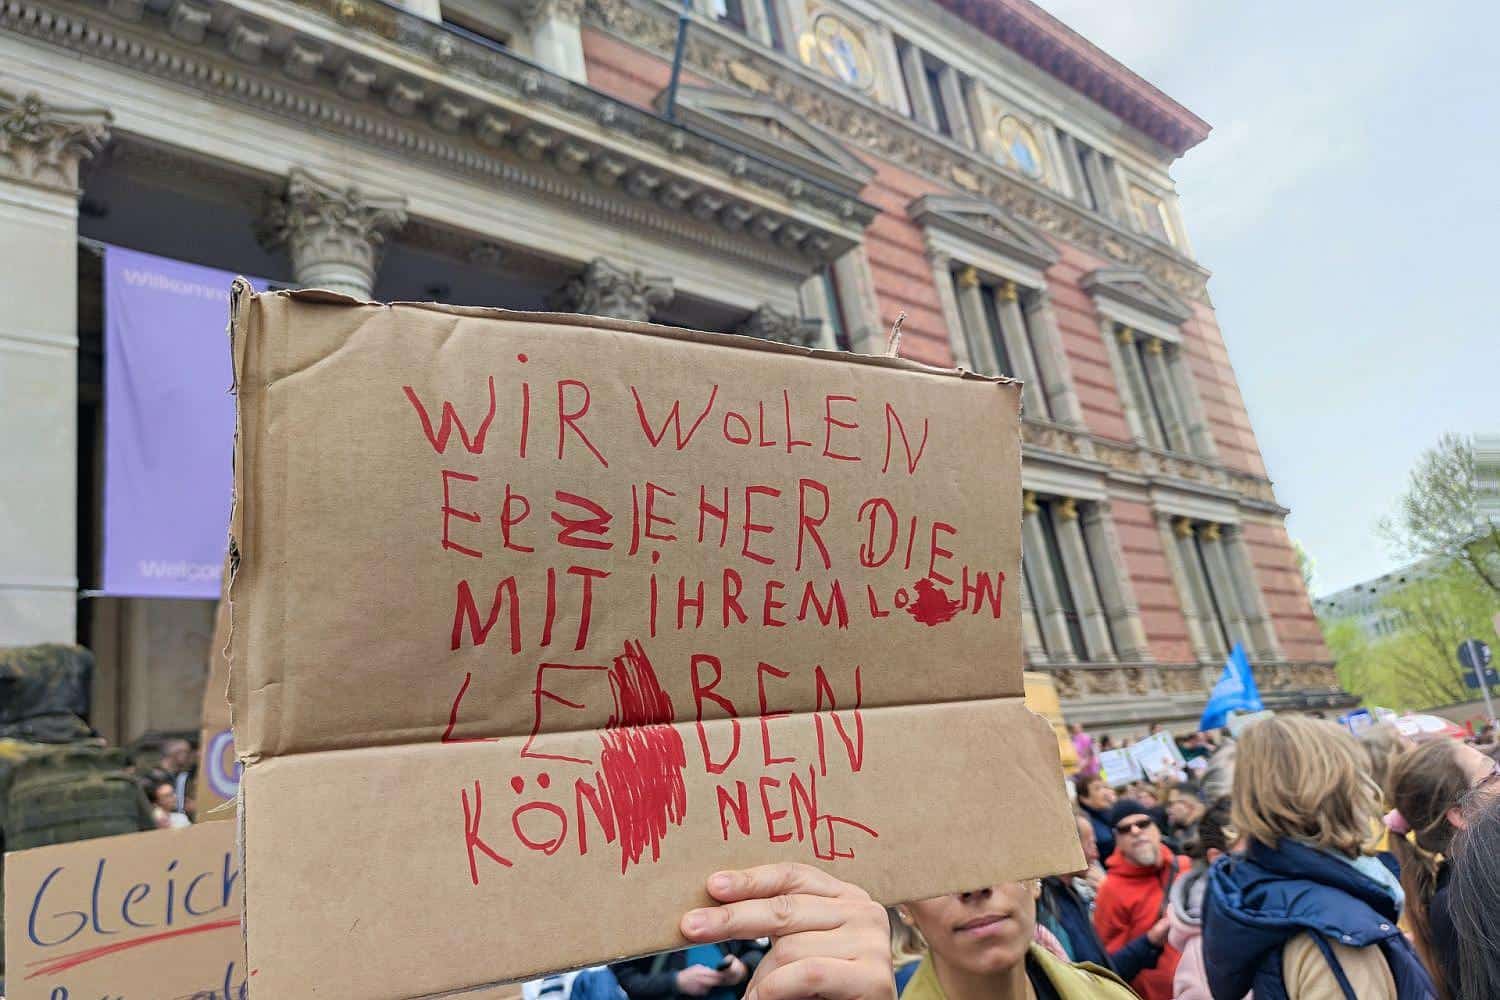 Willkomm
Welcom
WiR WOLLEN
ERZIEHER DIE
MIT IHREM LOHN
LEBEN
KÖNNEN
Gleich